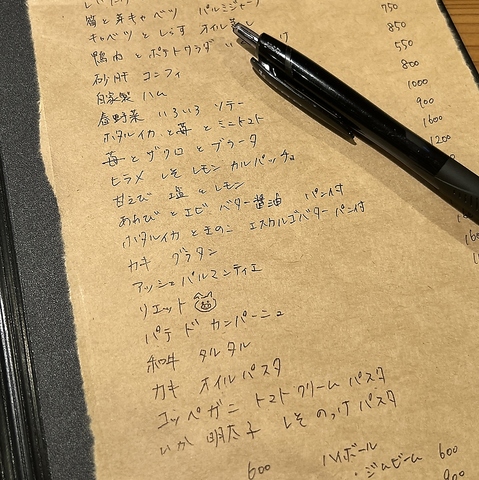 筍と芽キャベツ パルミジャーノ 750
キャベツとしらす オイル蒸し 850
鴨肉とポテトサラダ 550
砂肝 コンフィ 800
自家製 ハム 1000
春野菜 いろいろ ソテー 900
ホタルイカと苺とミニトマト 1600
苺とザクロとブラータ 1200
ヒラメ しそ レモン カルパッチョ
甘えび 塩とレモン
あわびとエビ バター醤油 パン付
ホタルイカときのこ エスカルゴバター パン付
カキ グラタン
アッシェパルマンティエ
リエット
パテ ド カンパーニュ
和牛 タルタル
カキ オイルパスタ
コッペガニ トマトクリーム パスタ
いか 明太子 しそのっけパスタ
600
ハイボール
・ジムビーム 600
900